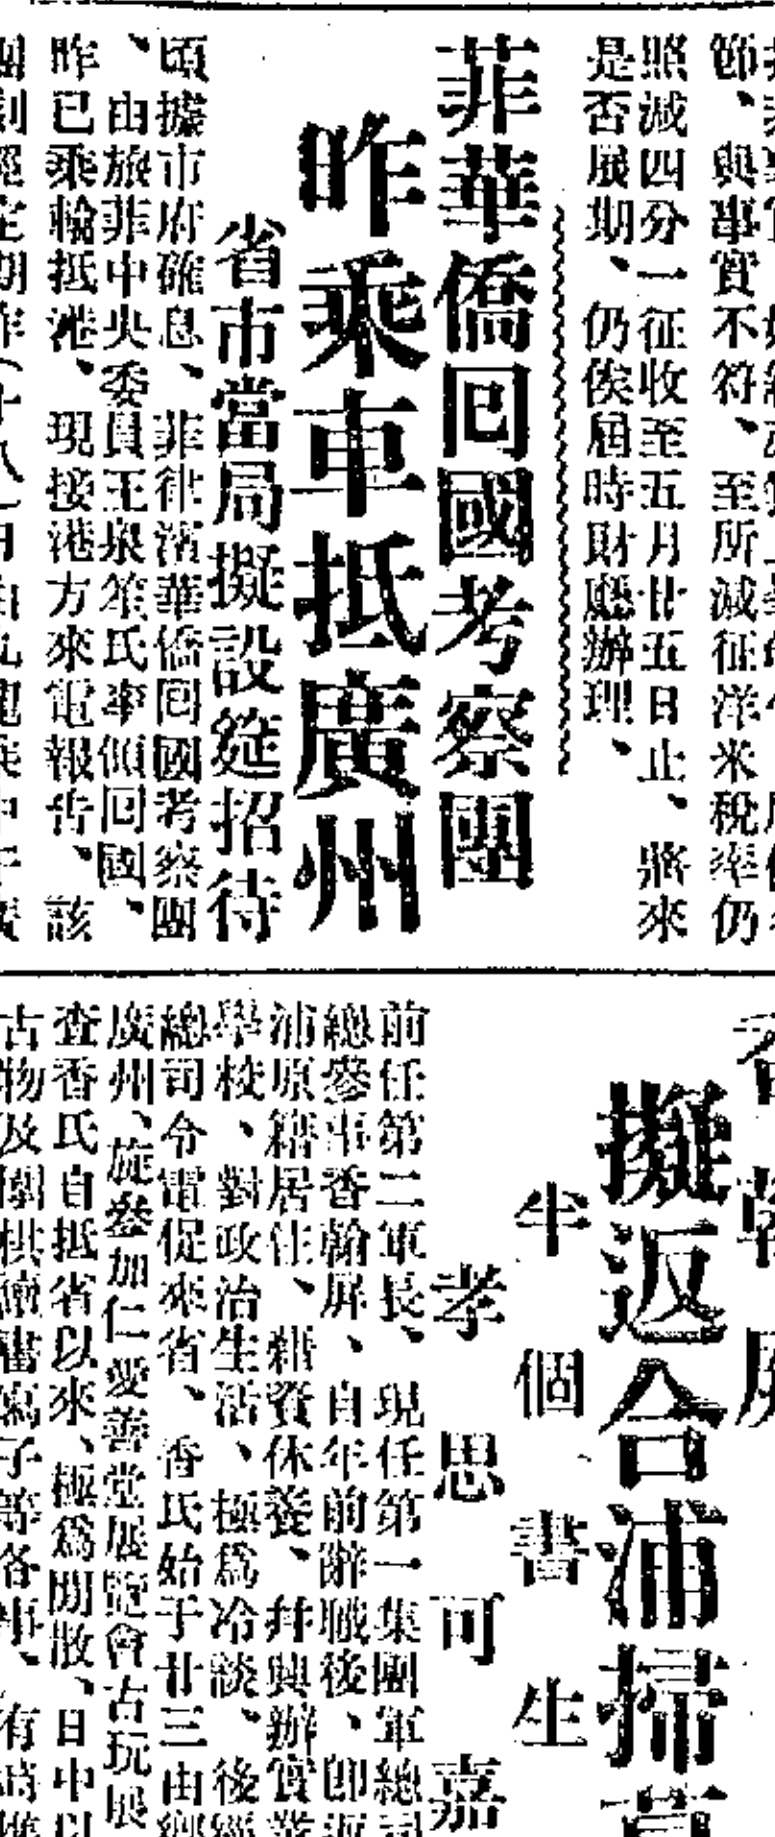 節、與事實不符、至所減征洋米稅率仍
照減四分一征收至五月廿五日止、將來
是否展期、仍俟屆時財廳辦理、
菲華僑回國考察團
昨乘車抵廣州
省市當局擬設筵招待
頃據市府確息、菲律濱華僑回國考察團
、由旅菲中央委員王泉笙氏率領回國、
昨已乘輪抵港、現接港方來電報告、該
擬返合浦掃
半個書生
孝思可嘉
前任第二軍長、現任第一集團軍總司
總參事香翰屏、自年前辭職後、卽返
浦原籍居住、藉資休養、幷興辦實業
學校、對政治生活、極爲冷談、後經
總司令電促來省、香氏始于廿三由鄉
廣州、旋參加仁愛善堂展覽會古玩展
查香氏自抵省以來、極爲閒散、日中以
古物及圍棋 寫字等各事、有時